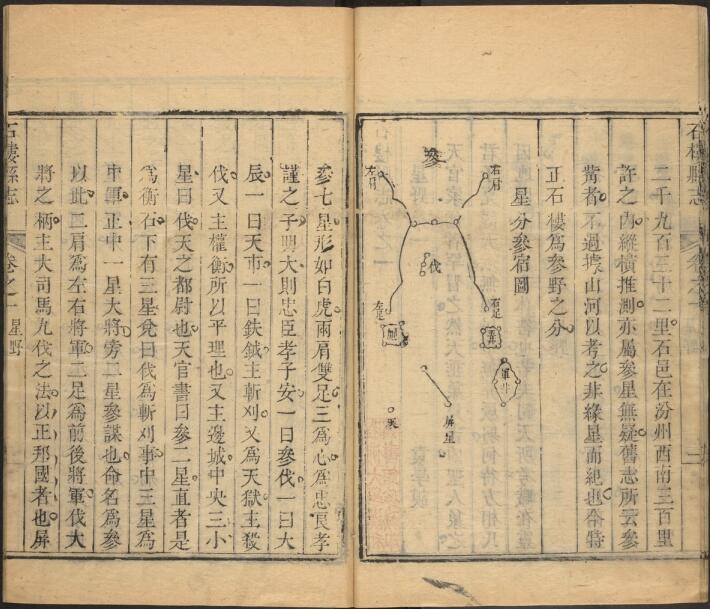 石樓縣志
二千九百三十二里石邑在汾州西南三百里
許之內縱橫推測亦屬參星無疑舊志所云參
觜者不過據山河以考之非緣星而紀也今特
正石樓爲參野之分
星分參宿圖
右肩
參
左肩
伐
右足
左足
軍井
屏星
參七星形如白虎兩肩雙足三爲心爲忠良孝
謹之子明大則忠臣孝子安一曰參伐一曰大
辰一曰天市一曰鈇鉞主斬刈又爲天獄主殺
伐又主權衡所以平理也又主邊城中央三小
星曰伐天之都尉也天官書曰參二星直者是
爲衡石下有三星兌曰伐爲斬刈事中三星爲
中軍正中一星大將旁二星參謀也命名爲參
以此二肩爲左右將軍二足爲前後將軍伐大
將之柄主大司馬九伐之法以正邦國者也屏
石樓縣志
卷之一
星野